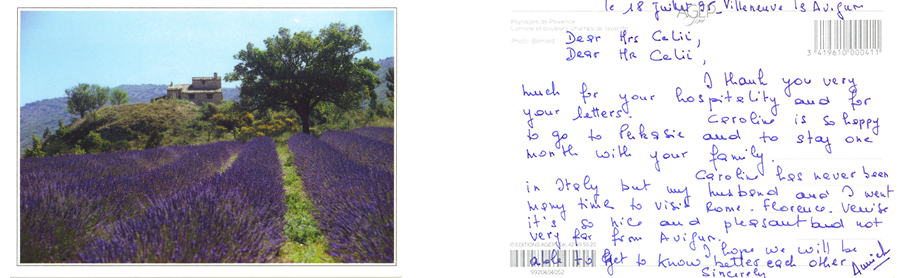 le 18 juillet 95 Villeneuve ls Avignon
AGEP
Paysages de Provence
Photo : Bernard
3 419610 000411
Dear Mrs Celii,
Dear Mr Celii,
I thank you very
much for your hospitality and for
your letters. Caroline is so happy
to go to Perkasie and to stay one
month with your family.
Caroline has never been
in Italy but my husband and I went
many time to visit Rome. Florence. Venise
it's so nice and pleasant and not
very far from Avignon.
I hope we will be
able to get to know better each other
Sincerely
9920404052